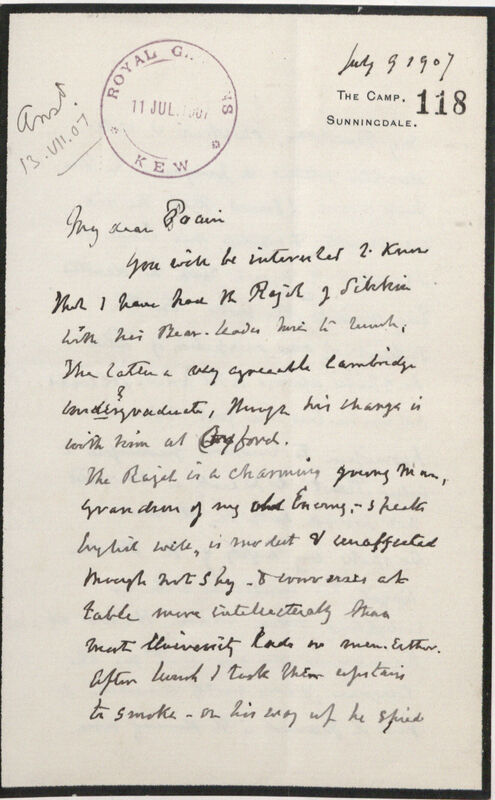 July 9 1907
THE CAMP.
118
SUNNINGDALE.
ROYAL GARDENS
11 JUL. 1907
KEW
Ansd.
13.VII.07
My dear Prain
You will be interested to know
that I have had the Rajah of Sikkim
with his Bear-leader here to lunch,
The latter a very agreeable Cambridge
?
undergraduate, though his charge is
with him at Oxford.
The Rajah is a charming young man,
grandson of my old Enemy, - speaks
English well, is modest & unaffected
though not shy - & converses at
table more intellectually than
most University lads or men. Esther.
After lunch I took them upstairs
to smoke - on his way up he spied